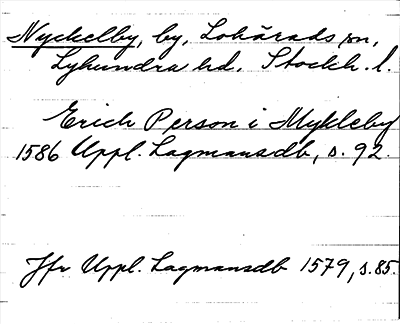 Nyckelby, by, Lohärads sn,
Lyhundra hd, Stockh. l.
Erich Person i Mykleby
1586 Uppl. Lagmansdb, s. 92.
Jfr Uppl. Lagmansdb 1579, s. 85.